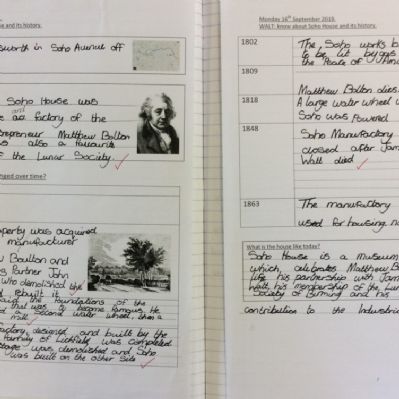 se and its history.
sworth in Soho Avenue off
Soho House was
and
factory of the
trepreneur Matthew Bolton
s also a favourite
the Lunar Society.
nged over time?
perty was acquired
manufacturer
w Boulton and
s Partner John
who demolished the
rebuilt it
the foundations of the
that was to become famous. He
mill. Second water wheel, then a
factory designed and built by the
family of Lichfield was completed
was demolished and Soho
was built on the other side
Monday 16th September 2019
WALT: know about Soho House and its history.
1802
The Soho works
to be lit by gas
the Peace of Amie
1809
Matthew Bolton dies.
1818
A large water wheel
Soho was powered
1848
Soho Manufactory
closed after Jam
Watt died
1863
The manufactory
used for housing no
What is the house like today?
Soho House is a museum
which celebrates Matthew B
life his partnership with Jam
Watt, his membership of the Lun
Society of Birming and his
contribution to the Industria